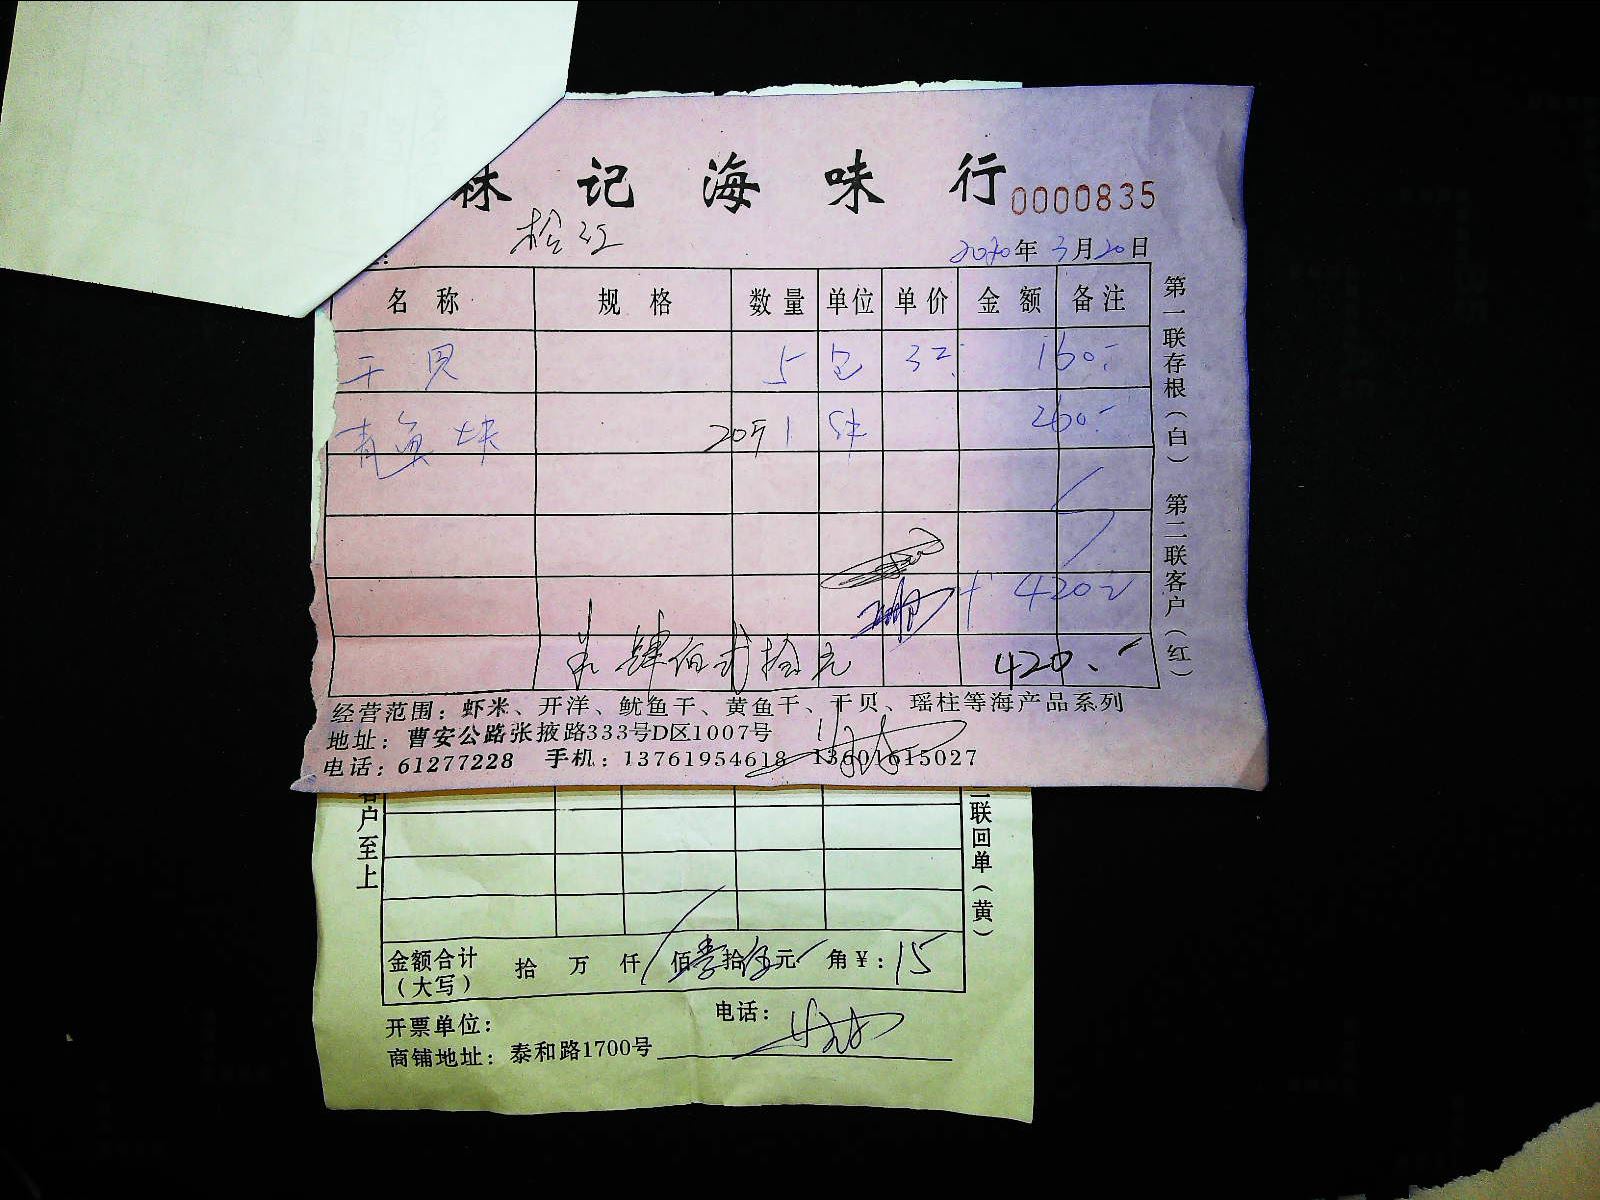 林记海味行 0000835
松江
2020年3月20日
名称 规格 数量 单位 单价 金额 备注
干贝 5 包 32. 160.-
青鱼块 20斤 1 260.-
420元
肆佰贰拾元 420.-
经营范围：虾米、开洋、鱿鱼干、黄鱼干、干贝、瑶柱等海产品系列
地址：曹安公路张掖路333号D区1007号
电话：61277228 手机：13761954618 13601615027
第一联存根（白） 第二联客户（红）
客户至上
二联回单（黄）
金额合计（大写） 拾 万 仟 佰壹拾伍元 角￥：15
开票单位： 电话：
商铺地址：泰和路1700号